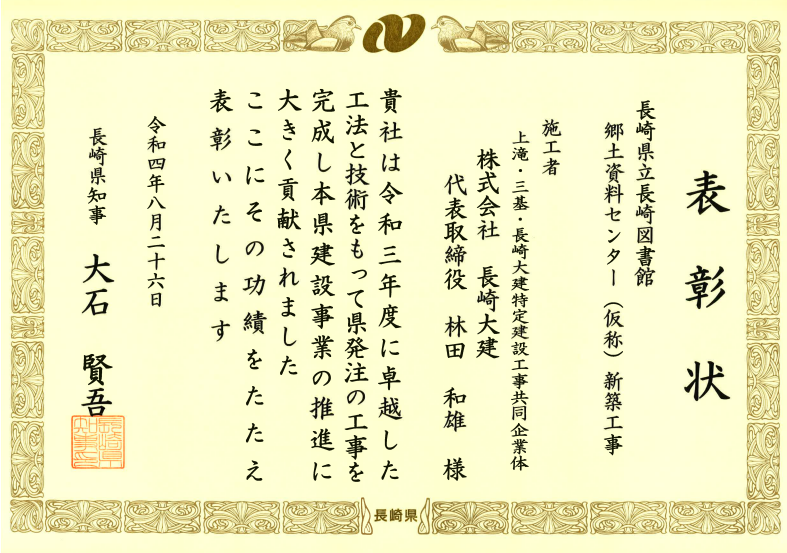 表彰状
長崎県立長崎図書館
郷土資料センター（仮称）新築工事
施工者
上滝・三基・長崎大建特定建設工事共同企業体
株式会社　長崎大建
代表取締役　林田　和雄　様
貴社は令和三年度に卓越した
工法と技術をもって県発注の工事を
完成し本県建設事業の推進に
大きく貢献されました
ここにその功績をたたえ
表彰いたします
令和四年八月二十六日
長崎県知事　大石　賢吾
長崎県知事之印
長崎県